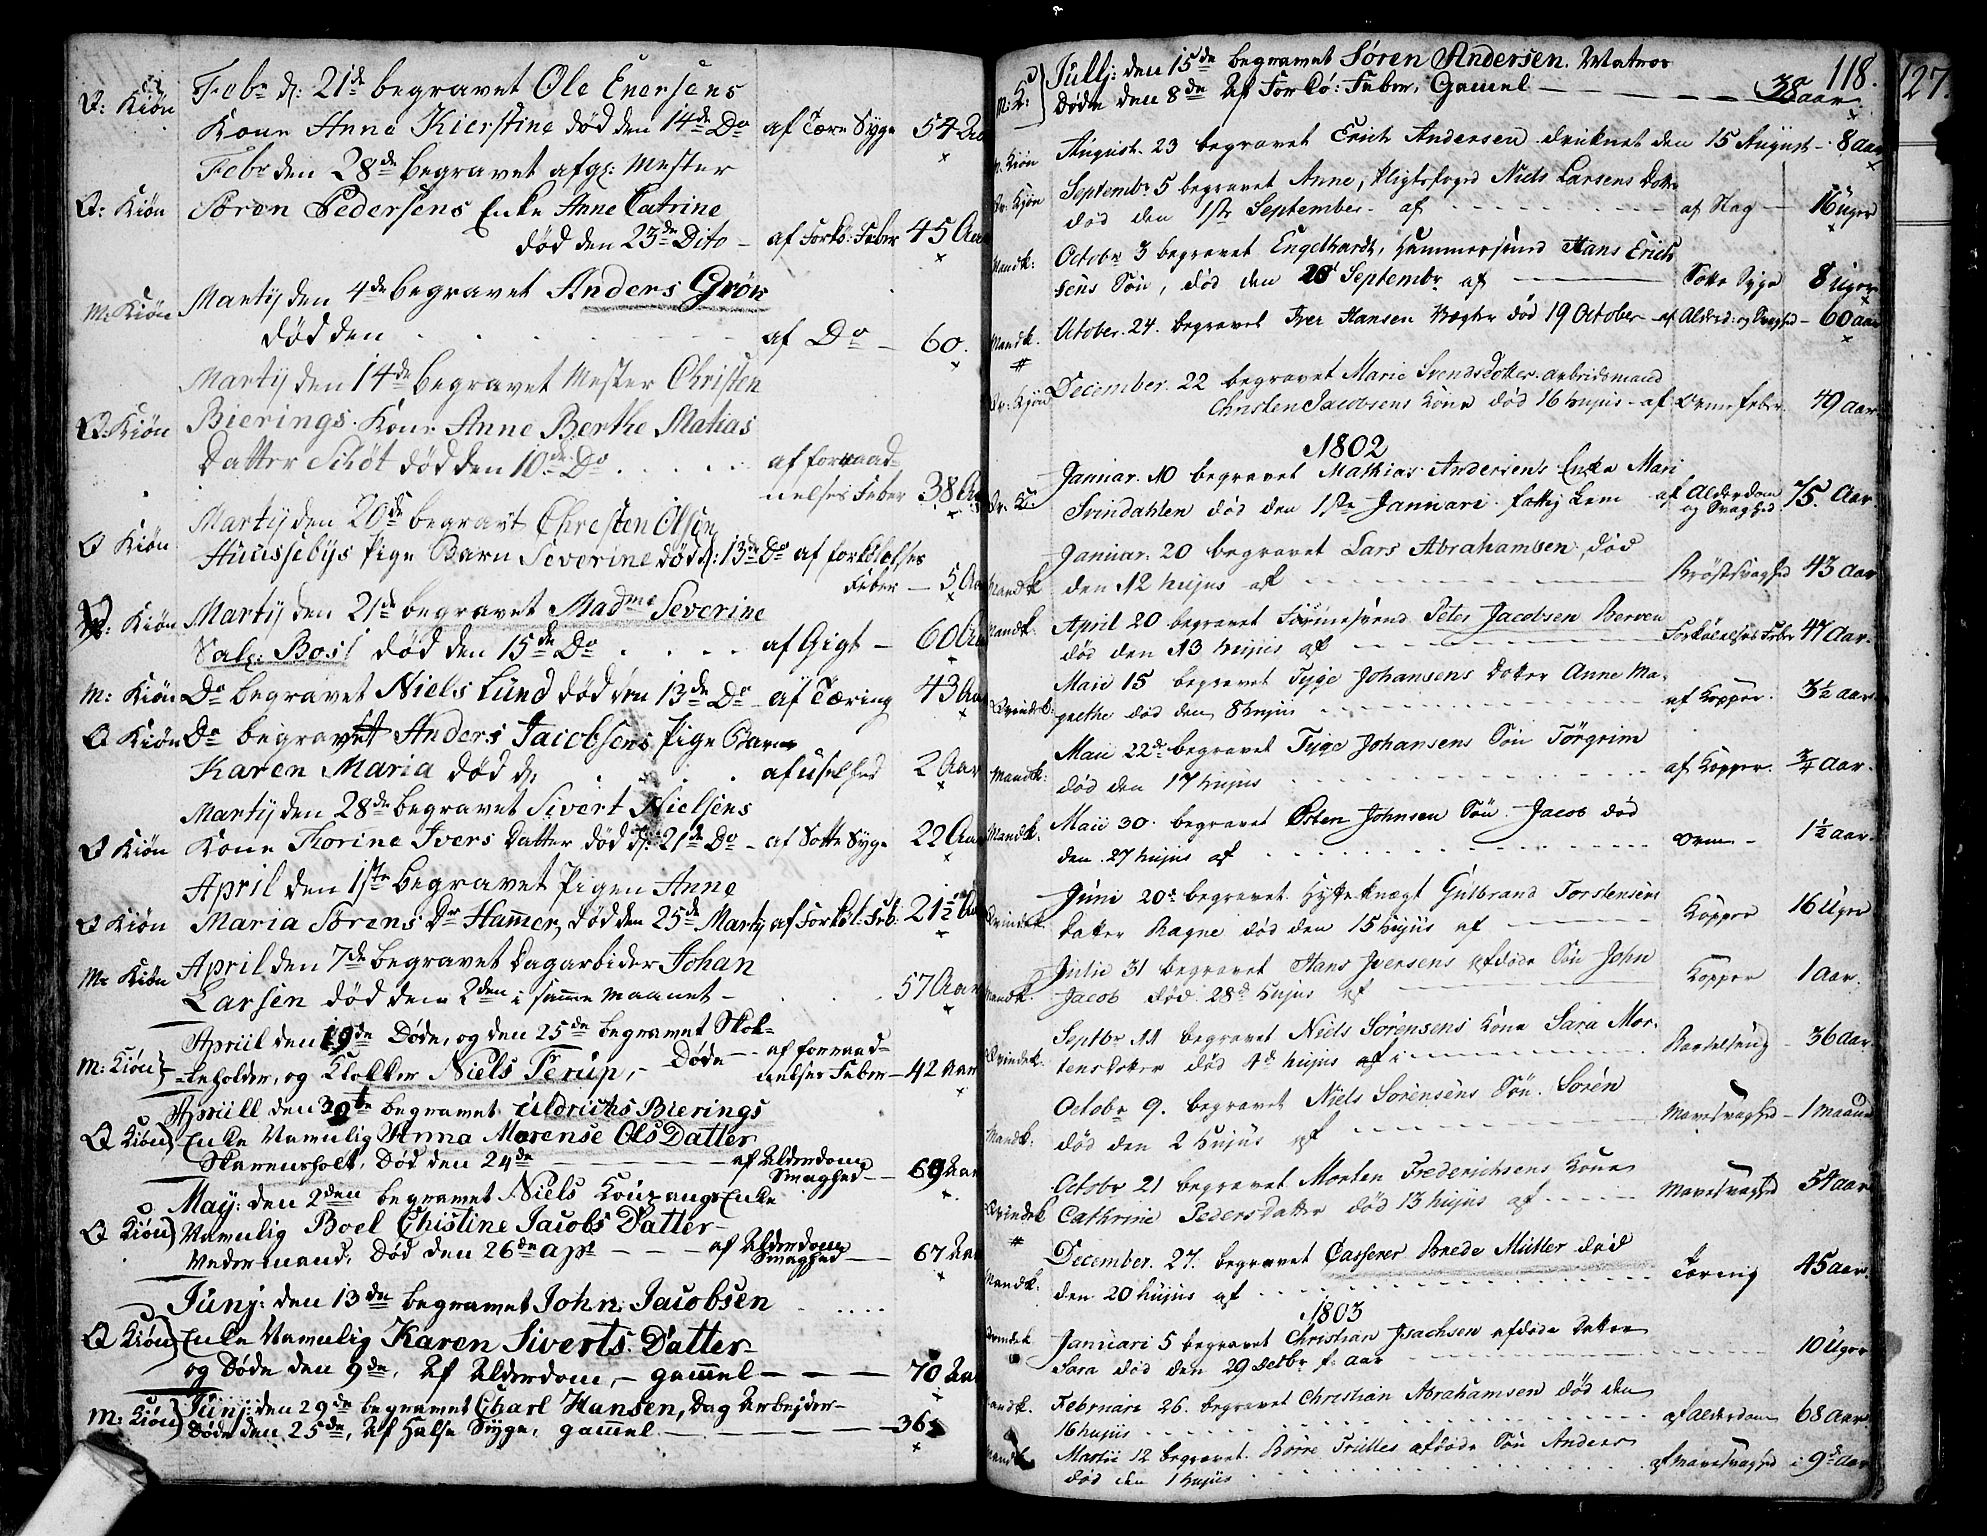 Q: Kiön Febr d: 21de begravet Ole Enersens
Kone Anne Kierstine död den 14de Do af Tære Syge 54 Aar
Febr den 28de begravet afg: Mester
Q: Kiön Sören Pedersens Enke Anne Catrine
död den 23de Dito – af Forkö: Feber 45 Aar
M: Kiön Martij den 4de begravet Anders Grön
död den . . . af Do – 60.
Martij den 14de begravet Mester Christen
Q: Kiön Bierings Kone Anne Berthe Matias
Datter Schöt död den 10de Do . . . . af forraad-
nelses Feber 38 Aar
Martij den 20de begravt Chresten Olsen
Q Kiön Huusebÿs Pige Barn Severine död d: 13de Do af forkölelses
Feber – 5 Aar
Q: Kiön Martij den 21de begravet Madme Severine
Sal: Bos! död den 15de Do . . . af Gigt – 60 Aar
M: Kiön Do begravet Niels Lund död den 13de Do – af Tæring 43 Aar
Q Kiön Do begravet Anders Jacobsens Pige Barn
Karen Maria död d: . . . . af uselhed 2 Aar
Martij den 28de begravet Sivert Nielsens
Q Kiön Kone Thorine Ivers Datter död d: 21de Do – af Sotte Syge 22 Aar
April den 1ste begravet Pigen Anne
Q Kiön Maria Sörens Dr Hamer, död den 25de Martij af Forköl: Feb: 21½ Aar
M: Kiön April den 7de begravet Dagarbider Johan
Larsen död den 2den i samme maanet – 57 Aar
Apriil den 19de Döde, og den 25de begravet Skol-
M: Kiön) =leholder, og Klokker Niels Terup, – Döde – – af forraad-
nelses Feber – 42 Aar
Apriill den 30te begravet Uldrichs Bierings
Q Kiön) Enke Navnlig Anna Marense Ols Datter
Skarensholt, Död den 24de – – – af Alderdoms
Svaghed – – 69 Aar
May: den 2den begravet Niels Kongangs Enke
Q Kiön) Navnlig Boel Chistine Jacobs Datter –
Nedermand, Död den 26de apr – – – af Alderdoms
Svaghed – 67 Aar
Junj: den 13de begravet John: Jacobsen . ....
Q Kiön) Enke Navnlig Karen Siverts Datter –
og Döde den 9de, Af Alderdom, – gammel – – – – 70 Aar
M: Kiön) Junj: den 29de begravet Charl Hansen, Dag Arbejder –
Döde den 25de, Af Halse Syge, gammel – – – – 36
118. 127.
M: K:) Julij: den 15de begravet Sören Andersen. Matros
Döde den 8de Af Forkö: Feber, Gammel – – – – 38 aar
M. Kiön August. 23 begravet Erich Andersen druknet den 15 August – 8 aar
Qv. Kjön Septembr 5 begravet Anne, Pligtsfoged Niels Larsens Dotter
död den 1ste September af – – – – af Slag – 16 Uger
Mandk: Octobr 3 begravet Engelhardt, Hammersmed Hans Erich
sens Sön, död den 28 Septembr af – – Sotte Syge 8 Uger
Mandk. October. 24. begravet Iver Hansen Vægter död 19 October – af Alderd: og Svaghed – 60 aar
#
Qv: Kjön December. 22 begravet Marie Svendsdotter arbeidsmand
Christen Jacobsens Kone död 16 hujus – af Orme feber. 49 aar.
1802
Qv. K: Januar. 10 begravet Mathias Andersens Enke Mari
Svindahlen död den 1ste Januari fattig Lem af Alderdom
og Svaghed 75. Aar.
Mandk Januar. 20 begravet Lars Abrahamsen död
den 12 hujus af – – – – Bröstsvaghed 43 aar
Mandk. April 20 begravet Formesvend Peter Jacobsen Berven
död den 13 hujus af – – – Forkölelses Feber 47 Aar.
Qvindek: Maii 15 begravet Tyge Johansens Dotter Anne Ma-
grethe död den 8 hujus – – – af Kopper. 3½ aar.
Mandk: Maii 22de begravet Tyge Johansens Sön Törgrim
död den 17 hujus – – – af Kopper. ¾ aar.
Mandk. Maii 30. begravet Östen Johnsen Sön Jacob död
den 27 hujus af . . . . . Orm – 1½ aar.
Qvindek. Juni 20de begravet Hytteknægt Gulbrand Torstensens
Datter Ragne död den 15 hujus af – – Kopper 16 Uger
Mandk. Julie 31 begravet Hans Iversens afdöde Sön John
Jacob död 28de hujus af – – Kopper 1 aar.
Qvindek. Septbr 11 begravet Niels Sörensens Kone Sara Mor-
tensdotter död 4de hujus af i – – – Barselseng – 36 aar.
Mandk: Octobr 9. begravet Niels Sörensens Sön. Sören
död den 2 hujus af – – – Mavesvaghed – 1 maaned
Qvindek Octobr 21 begravet Morten Frederichsens Kone
Cathrine Pedersdatter död 13 hujus af . . . . Mavesvaghed 54 aar
#
Mandk: December. 27. begravet Casserer Brede Müller död
den 20 hujus af . . . . . Tæring 45 aar.
1803
Qvindek Januari 5 begravet Christian Isachsen afdöde Datter
Sara död den 29 Decbr f: aar – – – 10 Uger
Mandk. Februari 26. begravet Christian Abrahamsen död den
16 hujus . . . . . af Alderdom 68 Aar.
Mandk Martii 12 begravet Börre Trulles afdöde Sön Anders
död den 1 hujus . . . . af Mavesvaghed i 9de aar